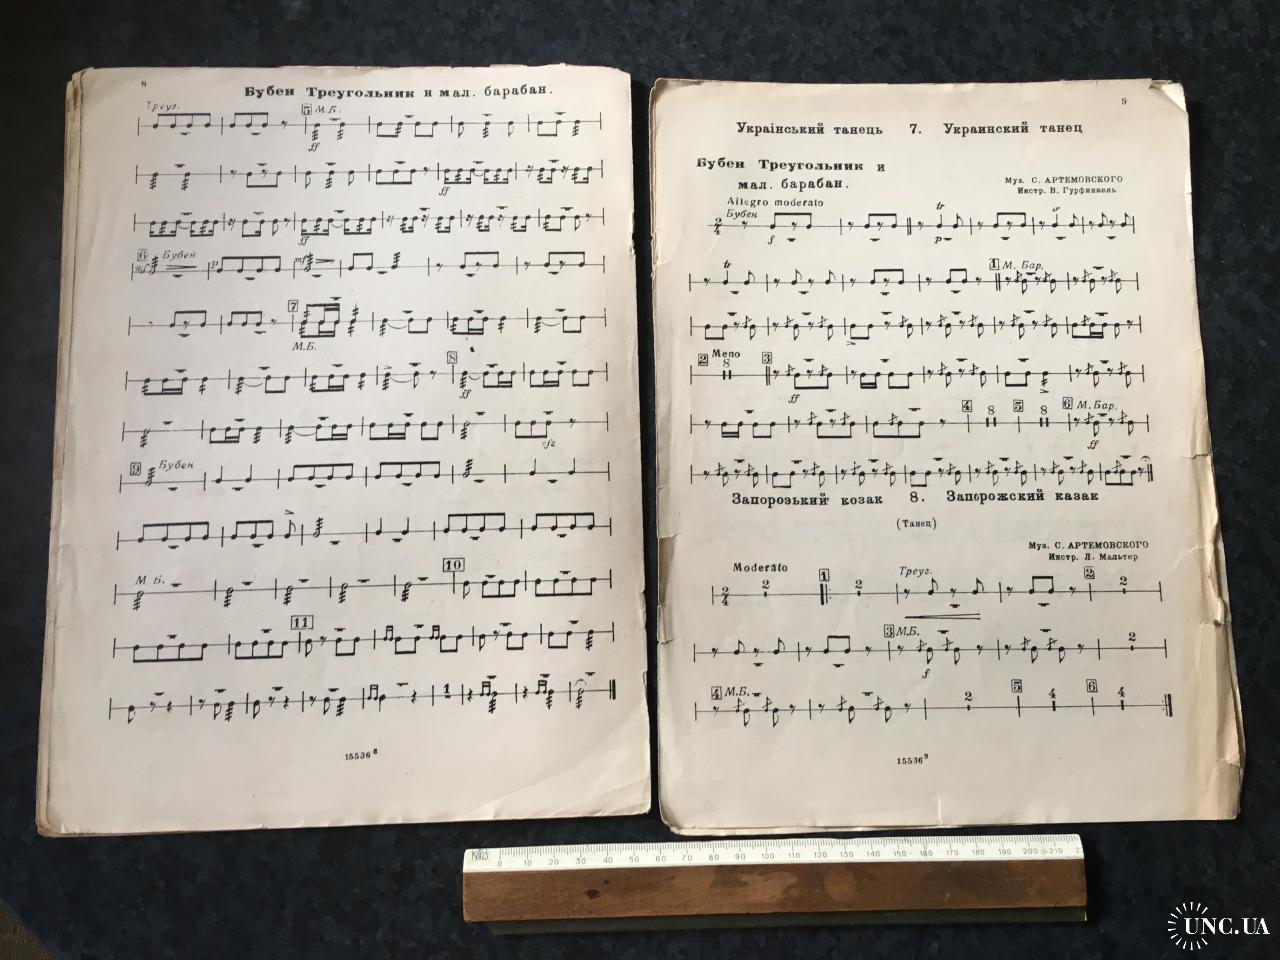 8
Бубен Треугольник и мал. барабан.
Треуг.
5 М.Б.
ff
ff
ff
6 mf Бубен p mf
7
М.Б.
8
ff
9 Бубен
М. Б.
10
11
1
15536 8
9
Український танець 7. Украинский танец
Бубен Треугольник и
мал. барабан.
Муз. С. АРТЕМОВСКОГО
Инстр. В. Гурфинкель
Allegro moderato
Бубен
2/4 f p tr tr
tr
1 М. Бар.
2 Meno 8 3
ff
4 8 5 8 6 М. Бар.
ff
Запорозький козак 8. Запорожский казак
(Танец)
Муз. С. АРТЕМОВСКОГО
Инстр. Л. Мальтер
Moderato
2/4 2 1 2 Треуг. 2 2
3 М.Б. 2
f
4 М.Б. 2 5 4 6 4
15536 9
0 10 20 30 40 50 60 70 80 90 100 110 120 130 140 150 160 170 180 190 200 210
UNC.UA